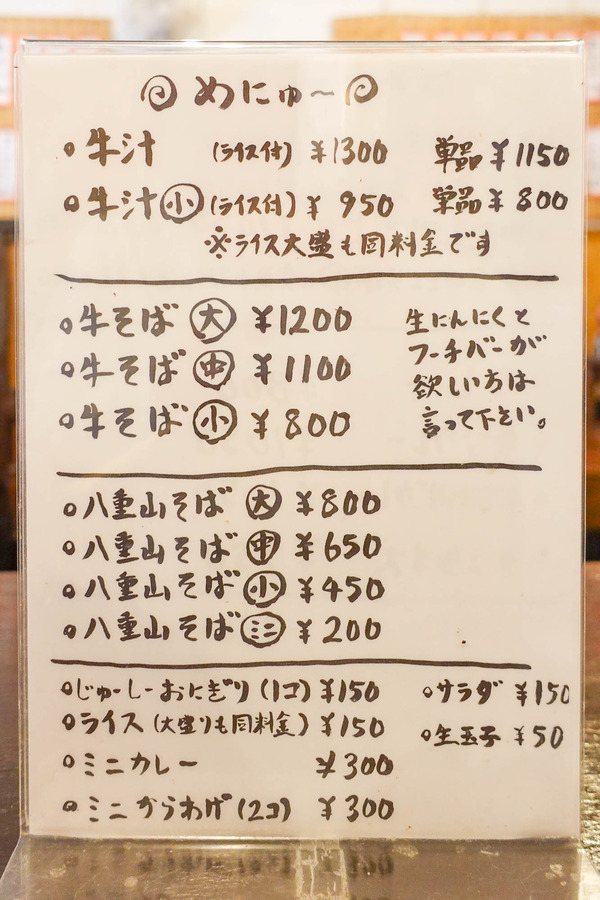 めにゅ〜
○牛汁 (ライス付) ¥1300 単品 ¥1150
○牛汁㊙小 (ライス付) ¥ 950 単品 ¥ 800
※ライス大盛も同料金です
○牛そば 大 ¥1200
○牛そば 中 ¥1100
○牛そば 小 ¥800
生にんにくと
フーチバーが
欲しい方は
言って下さい。
○八重山そば 大 ¥800
○八重山そば 中 ¥650
○八重山そば 小 ¥450
○八重山そば ミニ ¥200
○じゅーしーおにぎり(1コ) ¥150
○ライス(大盛りも同料金) ¥150
○ミニカレー ¥300
○ミニからあげ(2コ) ¥300
○サラダ ¥150
○生玉子 ¥50